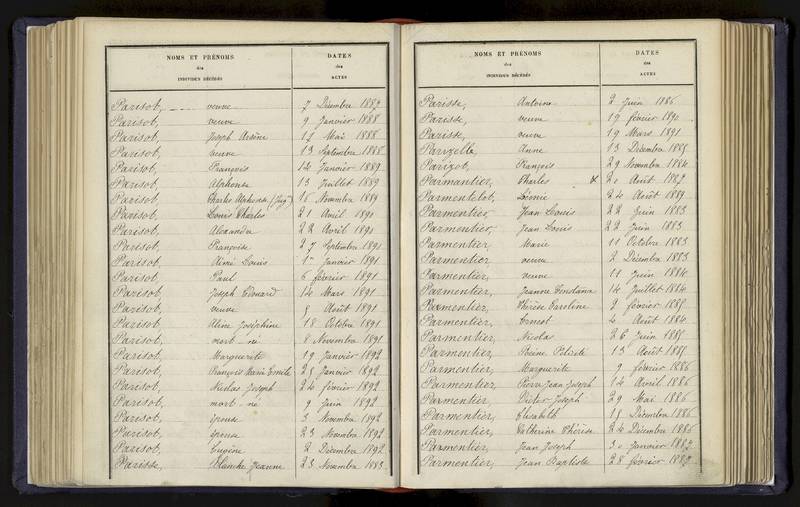 NOMS ET PRÉNOMS
des
INDIVIDUS DÉCÉDÉS
DATES
des
ACTES
Parisot, veuve 7 Décembre 1887
Parisot, veuve 9 Janvier 1888
Parisot, Joseph Arsène 12 Mai 1888
Parisot, veuve 13 Septembre 1888
Parisot, François 14 Janvier 1889
Parisot, Alphonse 13 Juillet 1889
Parisot, Charles Alphonse (Jug) 16 Novembre 1889
Parisot, Louis Charles 21 Avril 1891
Parisot, Alexandre 22 Avril 1891
Parisot, Françoise 27 Septembre 1891
Parisot, Aimé Louis Janvier 1891
Parisot, Paul 6 février 1891
Parisot, Joseph Edouard 14 Mars 1891
Parisot, veuve Août 1891
Parisot, Aline Joséphine 18 Octobre 1891
Parisot, mort-né 8 Novembre 1891
Parisot, Marguerite 19 Janvier 1892
Parisot, François Marie Emile 25 Janvier 1892
Parisot, Nicolas Joseph 24 février 1892
Parisot, mort-né 9 Juin 1892
Parisot, épouse 3 Novembre 1892
Parisot, épouse 23 Novembre 1892
Parisot, Eugène 2 Décembre 1892
Parisse, Blanche Jeanne 23 Novembre 1883
NOMS ET PRÉNOMS
des
INDIVIDUS DÉCÉDÉS
DATES
des
ACTES
Parisse, Antoine 2 Juin 1886
Parisse, veuve 19 février 1890
Parisse, veuve 19 Mars 1891
Parizelle, Anne 13 Décembre 1885
Parizot, François 29 Novembre 1884
Parmantier, Charles x 20 Août 1887
Parmentelot, Léonie 24 Août 1889
Parmentier, Jean Louis 22 Juin 1883
Parmentier, Jean Louis 22 Juin 1883
Parmentier, Marie 11 Octobre 1883
Parmentier veuve 2 Décembre 1883
Parmentier, veuve 11 Juin 1884
Parmentier, Jeanne 14 Juillet 1884
Parmentier, Thérèse Caroline 9 février 1885
Parmentier, Ernest 4 Août 1884
Parmentier, Nicolas 26 Juin 1885
Parmentier, 13 Août 1885
Parmentier, Marguerite 9 février 1886
Parmentier, Pierre Jean Joseph 14 Avril 1886
Parmentier, Victor Joseph 29 Mai 1886
Parmentier, Elisabeth 15 Décembre 1886
Parmentier, Catherine Thérèse 24 Décembre 1886
Parmentier, Jean Joseph 30 Janvier 1887
Parmentier, Jean Baptiste 28 février 1887